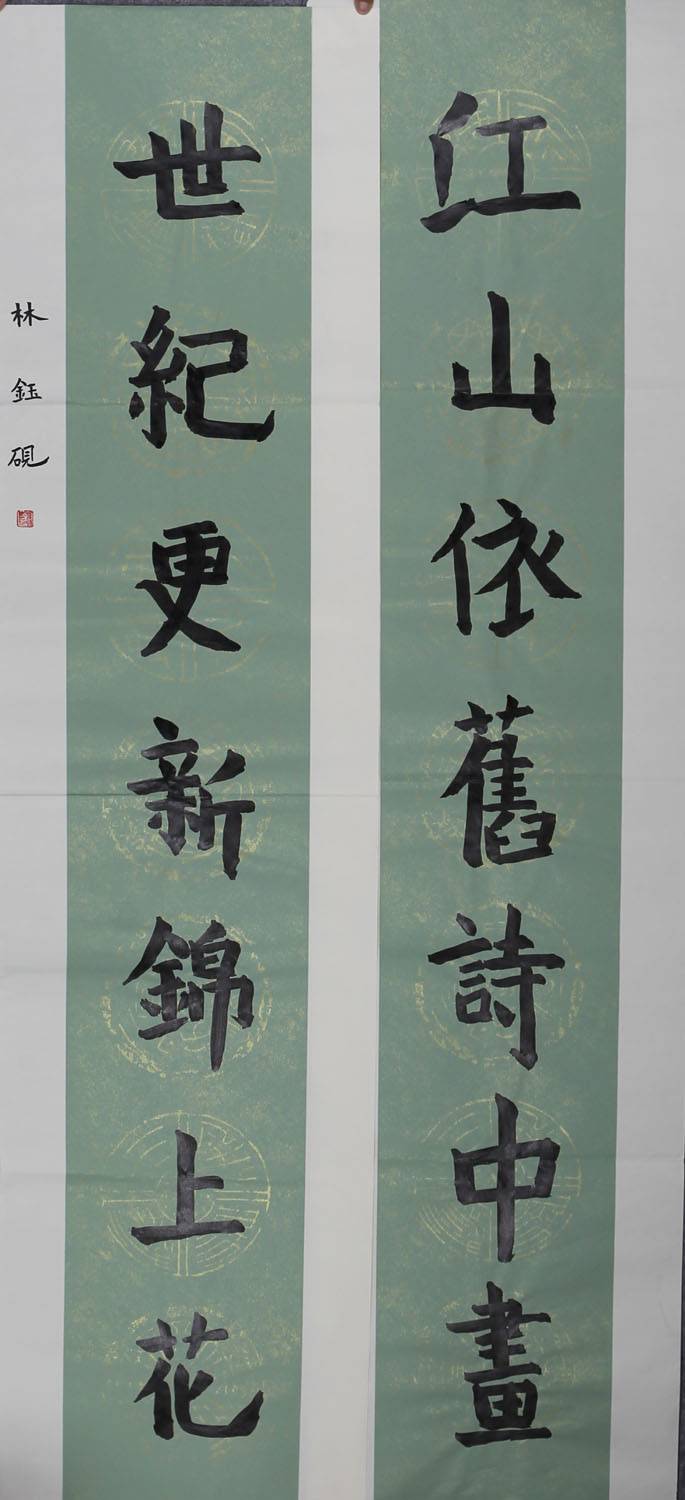 江山依舊詩中畫
世紀更新錦上花
林鈺硯